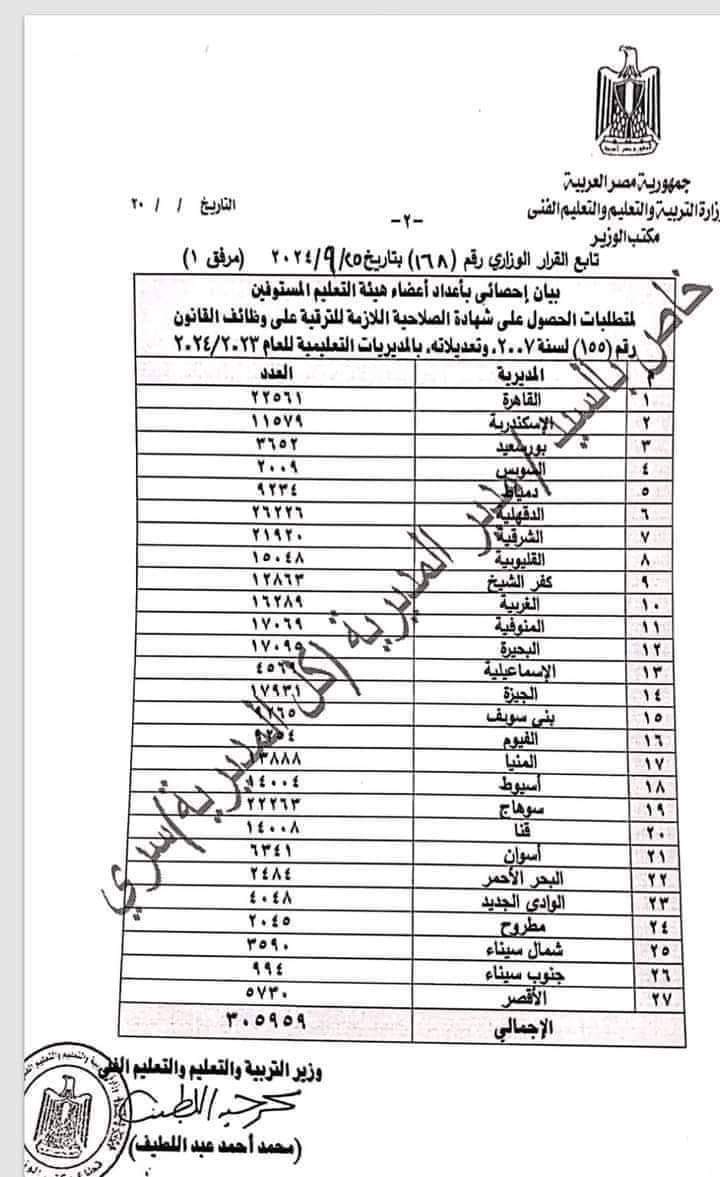 جمهورية مصر العربية
وزارة التربية والتعليم والتعليم الفنى
مكتب الوزير
التاريخ / / ٢٠
-٢-
تابع القرار الوزاري رقم (١٦٨) بتاريخ ٢٥/٩/٢٠٢٤ (مرفق ١)
بيان إحصائي بأعداد أعضاء هيئة التعليم المستوفين
لمتطلبات الحصول على شهادة الصلاحية اللازمة للترقية على وظائف القانون
رقم (١٥٥) لسنة ٢٠٠٧، وتعديلاته، بالمديريات التعليمية للعام ٢٠٢٤/٢٠٢٣
م المديرية العدد
١ القاهرة ٢٢٥٦١
٢ الإسكندرية ١١٥٧٩
٣ بورسعيد ٣٦٥٢
٤ السويس ٢٠٠٩
٥ دمياط ٩٢٣٤
٦ الدقهلية ٢٦٢٢٦
٧ الشرقية ٢١٩٢٠
٨ القليوبية ١٥٠٤٨
٩ كفر الشيخ ١٢٨٦٣
١٠ الغربية ١٦٢٨٩
١١ المنوفية ١٧٠٦٩
١٢ البحيرة ١٧٠٩٥
١٣ الإسماعيلية ٤٥٦٩
١٤ الجيزة ١٧٩٣١
١٥ بنى سويف ٩٢٦٥
١٦ الفيوم ٩٢٥٤
١٧ المنيا ١٣٨٨٨
١٨ أسيوط ١٤٠٠٤
١٩ سوهاج ٢٢٢٦٣
٢٠ قنا ١٤٠٠٨
٢١ أسوان ٦٣٤١
٢٢ البحر الأحمر ٢٤٨٤
٢٣ الوادي الجديد ٤٠٤٨
٢٤ مطروح ٢٠٤٥
٢٥ شمال سيناء ٣٥٩٠
٢٦ جنوب سيناء ٩٩٤
٢٧ الأقصر ٥٧٣٠
الإجمالي ٣٠٥٩٥٩
خاص بالسيد/ مدير المديرية (كل المديرية)/سري
وزير التربية والتعليم والتعليم الفنى
(محمد أحمد عبد اللطيف)